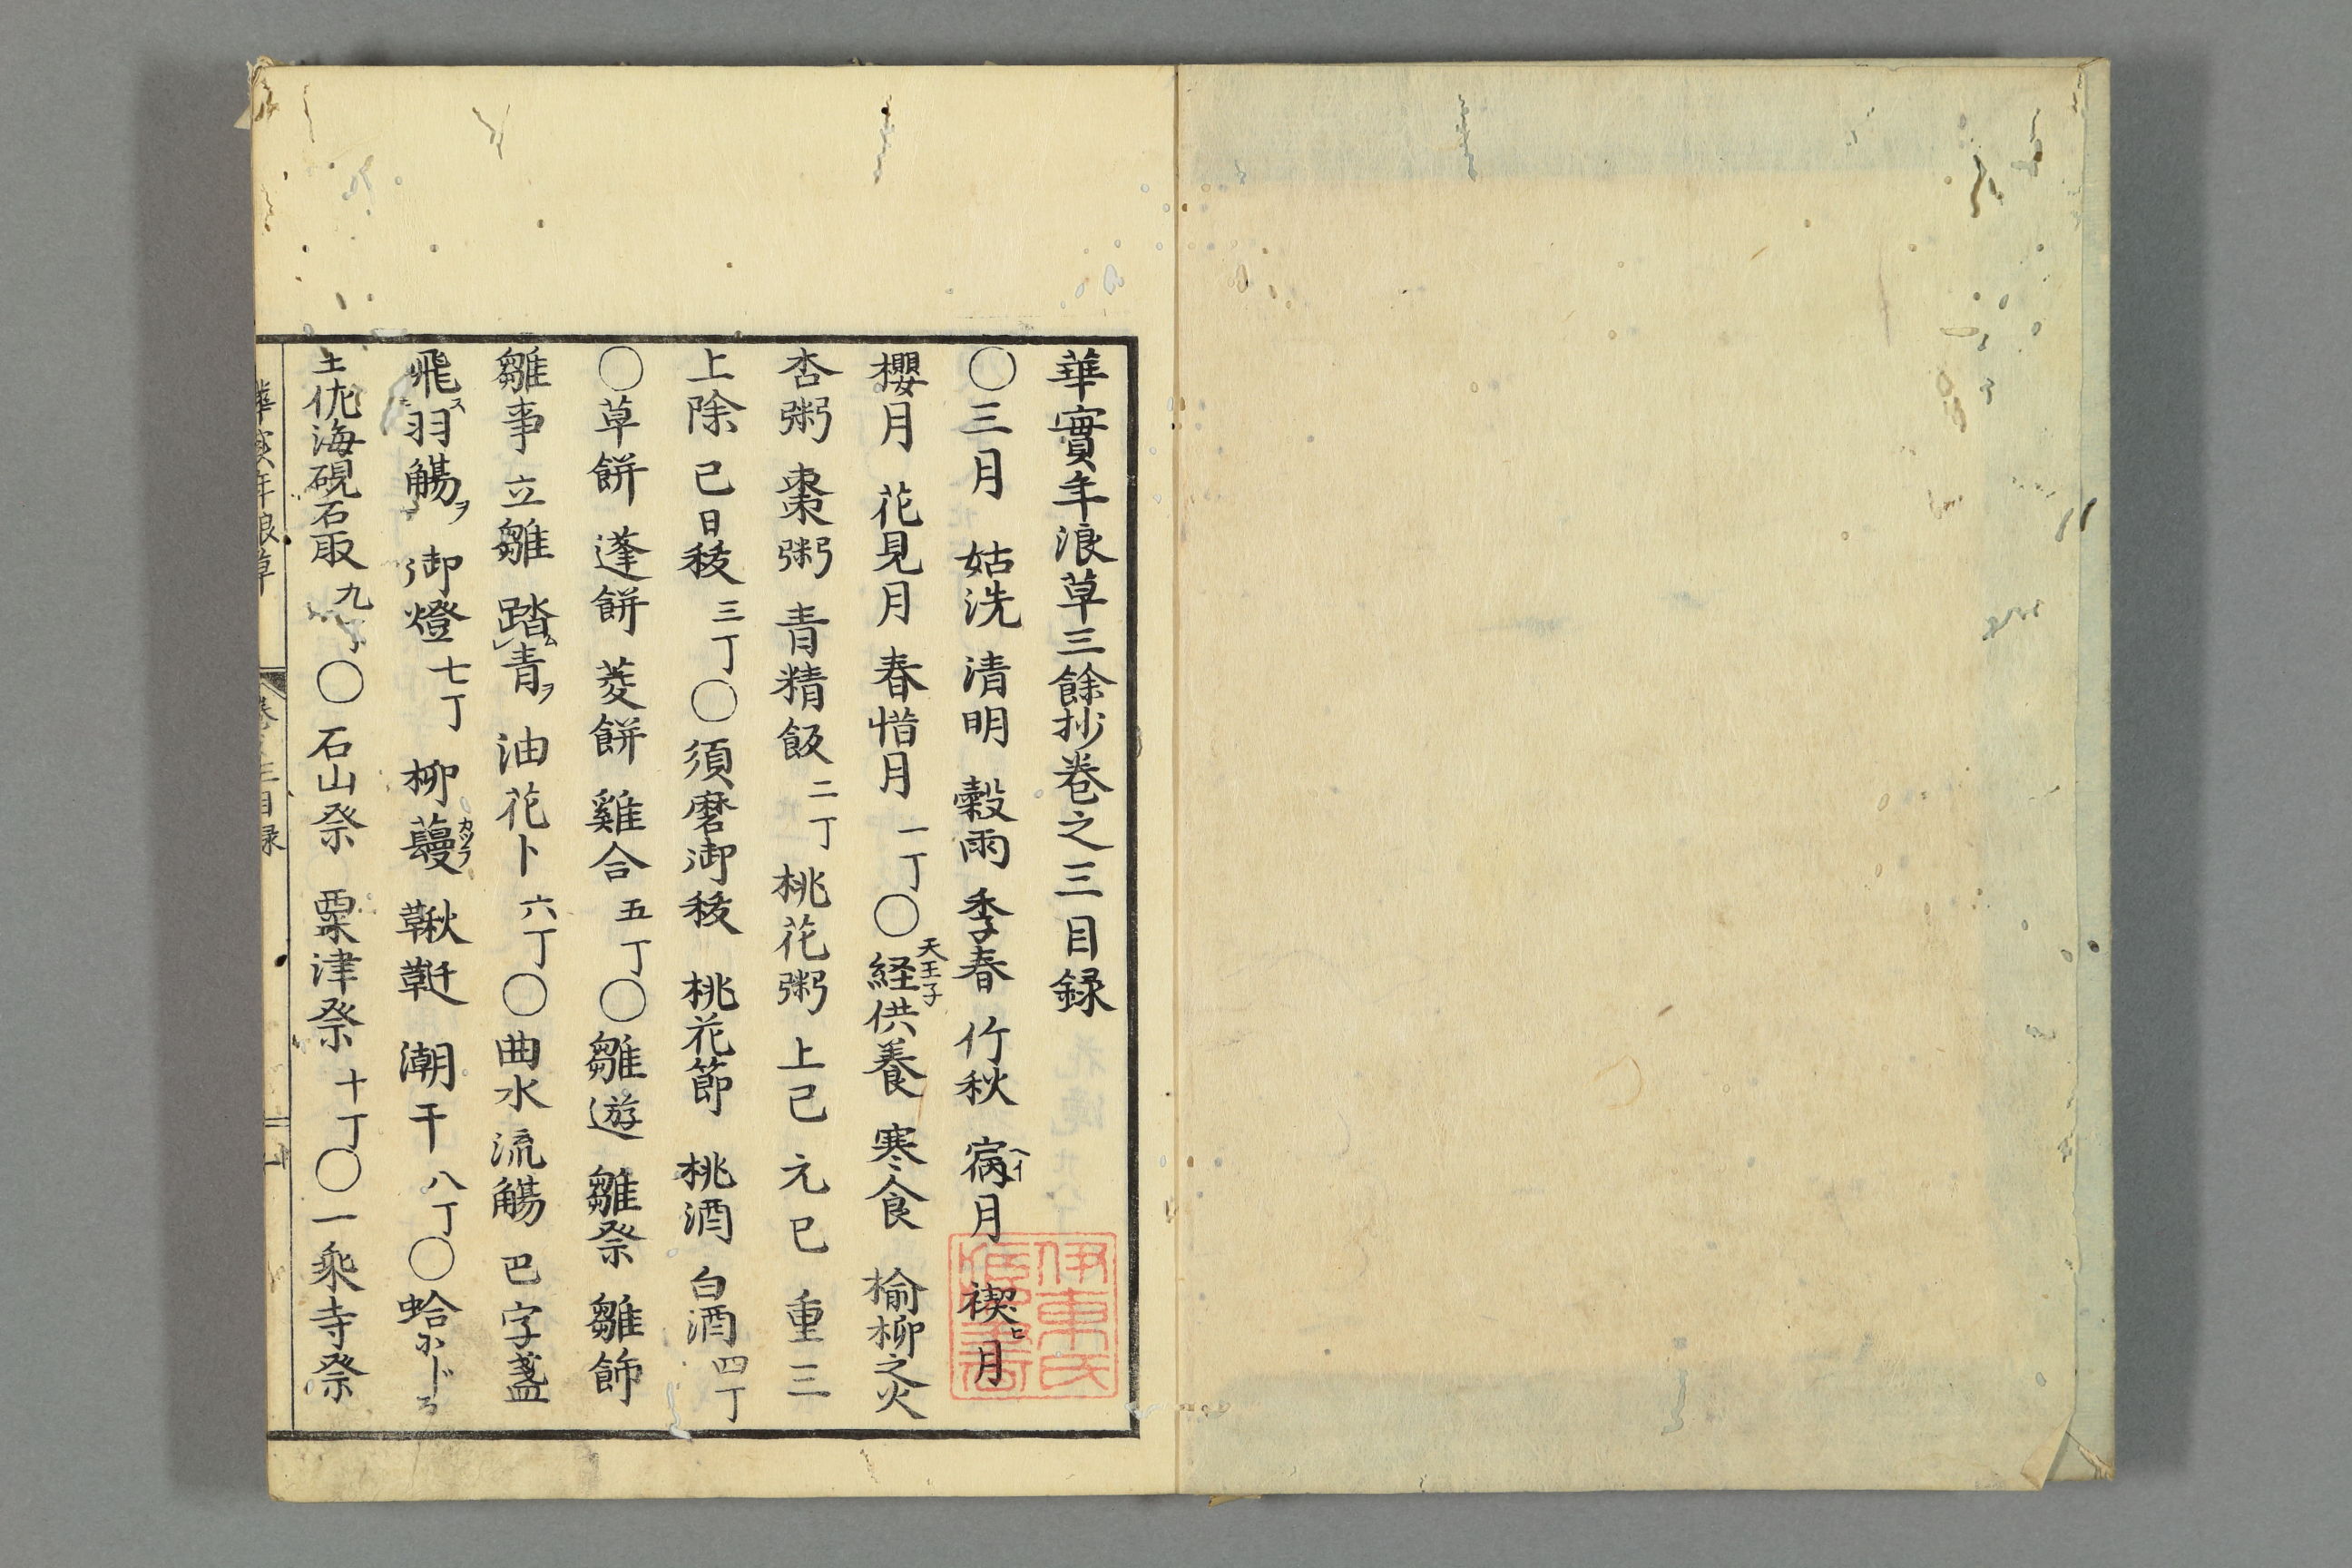 華實年浪草三餘抄巻之三目録
〇三月 姑洗 清明 穀雨 季春 竹秋 寎月 禊月
櫻月 花見月 春惜月 一丁〇経供養 寒食 榆柳之火
杏粥 棗粥 青精飯 二丁 桃花粥 上巳 元巳 重三
上除 巳日秡 三丁〇須磨御秡 桃花節 桃酒 白酒 四丁
〇草餅 蓬餅 菱餅 雞合 五丁〇雛遊 雛祭 雛飾
雛事 立雛 踏青 油花卜 六丁〇曲水 流觴 巴字盞
飛羽觴 御燈 七丁 柳蘰 鞦韆 潮干 八丁〇蛤
土佐海硯石取 九丁〇石山祭 粟津祭 十丁〇一乘寺祭
伊東氏